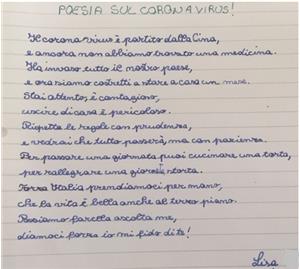 POESIA SUL CORONAVIRUS!
Il corona virus è partito dalla Cina,
e ancora non abbiamo trovato una medicina.
Ha invaso tutto il nostro paese,
e ora siamo costretti a stare a casa un mese.
Stai attento, è contagioso,
uscire di casa è pericoloso.
Rispetta le regole con prudenza,
e vedrai che tutto passerà, ma con pazienza.
Per passare una giornata puoi cucinare una torta,
per rallegrare una giornata storta.
Forza Italia prendiamoci per mano,
che la vita è bella anche al terzo piano.
Possiamo farcela ascolta me,
diamoci forza io mi fido di te!
Lisa